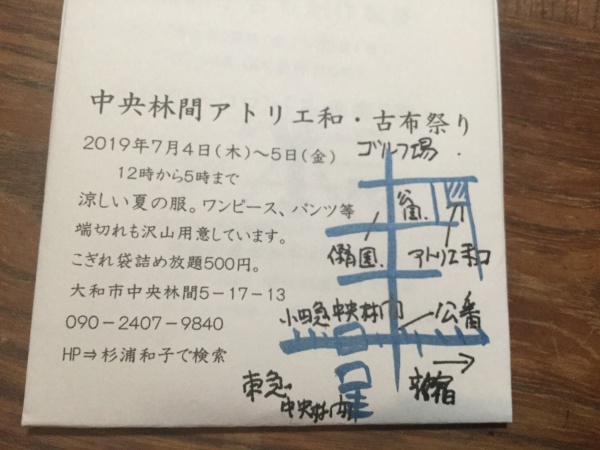 中央林間アトリエ和・古布祭り
2019年7月4日(木)~5日(金)
12時から5時まで
涼しい夏の服。ワンピース、パンツ等
端切れも沢山用意しています。
こぎれ袋詰め放題500円。
大和市中央林間5-17-13
090-2407-9840
HP⇒杉浦和子で検索
ゴルフ場
公園
アトリエ和
小田急中央林間
新宿
東急
中央林間